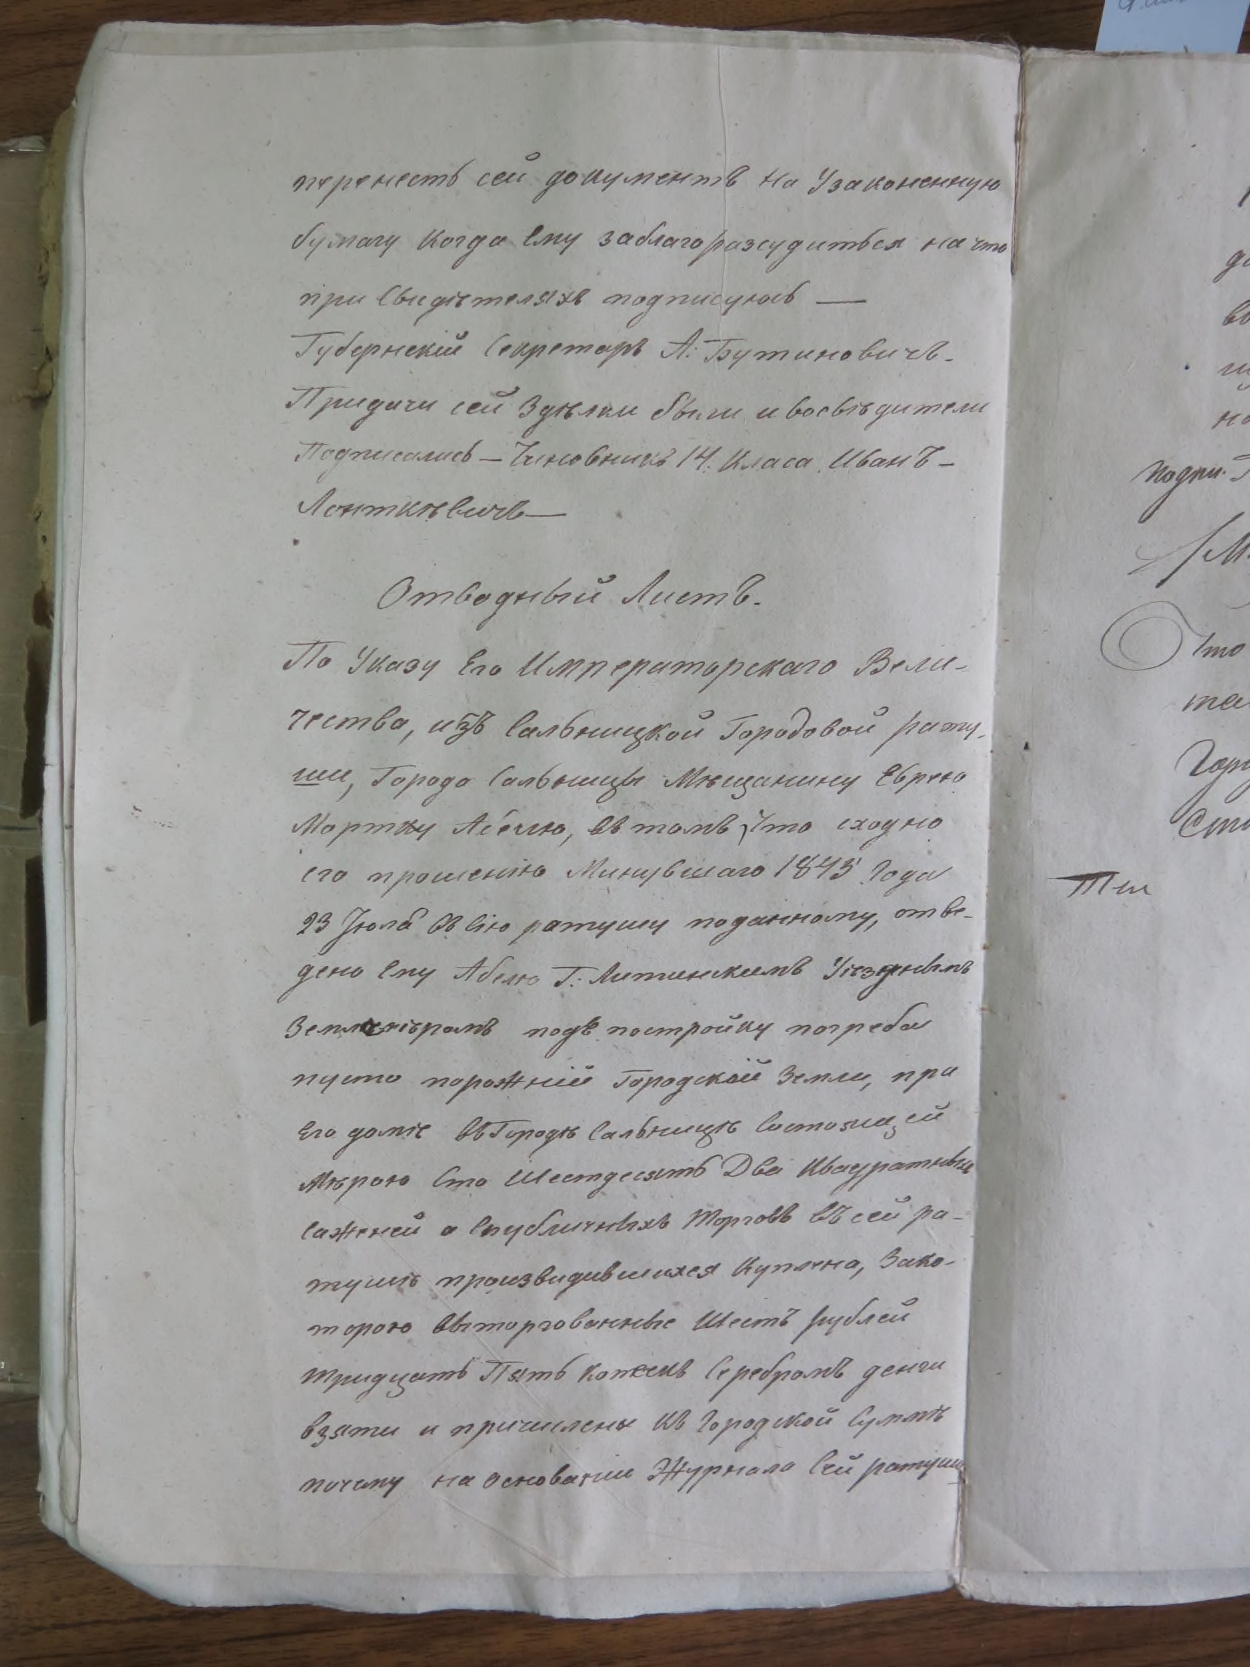 перенесть сей документъ на Узаконенную
бумагу когда Ему заблагоразсудиться на что
при Свидѣтеляхъ подписуюсь —
Губернскій Секретаръ А: Бутиновичъ.
Придачи сей Здѣлки были и восвѣдители
Подписались — Чиновникъ 14. Класа Иванъ —
Лонткѣвичъ —
Отводный Листъ.
По Указу Его Императорскаго Вели-
чества, изъ Сальницкой Городовой рату-
ши, Города Сальницы Мѣщанину Еврею
Мортку Абелю, въ томъ что сходно
его прошенію Минувшаго 1845 Года
23 Іюля въ сію ратушу поданному, отве-
дено Ему Абелю Г: Литинскимъ Уѣзднымъ
Землемѣромъ подъ постройку погреба
пусто порожній Городской Земли, при
Его домѣ въ Городѣ Сальницѣ Состоящей
Мѣрою Сто Шестдесятъ Два Квадратныхъ
Саженей а Спубличныхъ Торговъ въ сей ра-
тушѣ производившихся Куплена, Зако-
торою выторгованные Шесть рублей
тридцать Пять Копѣекъ Серебромъ денги
взяти и причислены къ Городской Суммѣ
почему на основаніи Журнала Сей ратуши
подпи. Г
Что
та
Горо
Сто
Тит